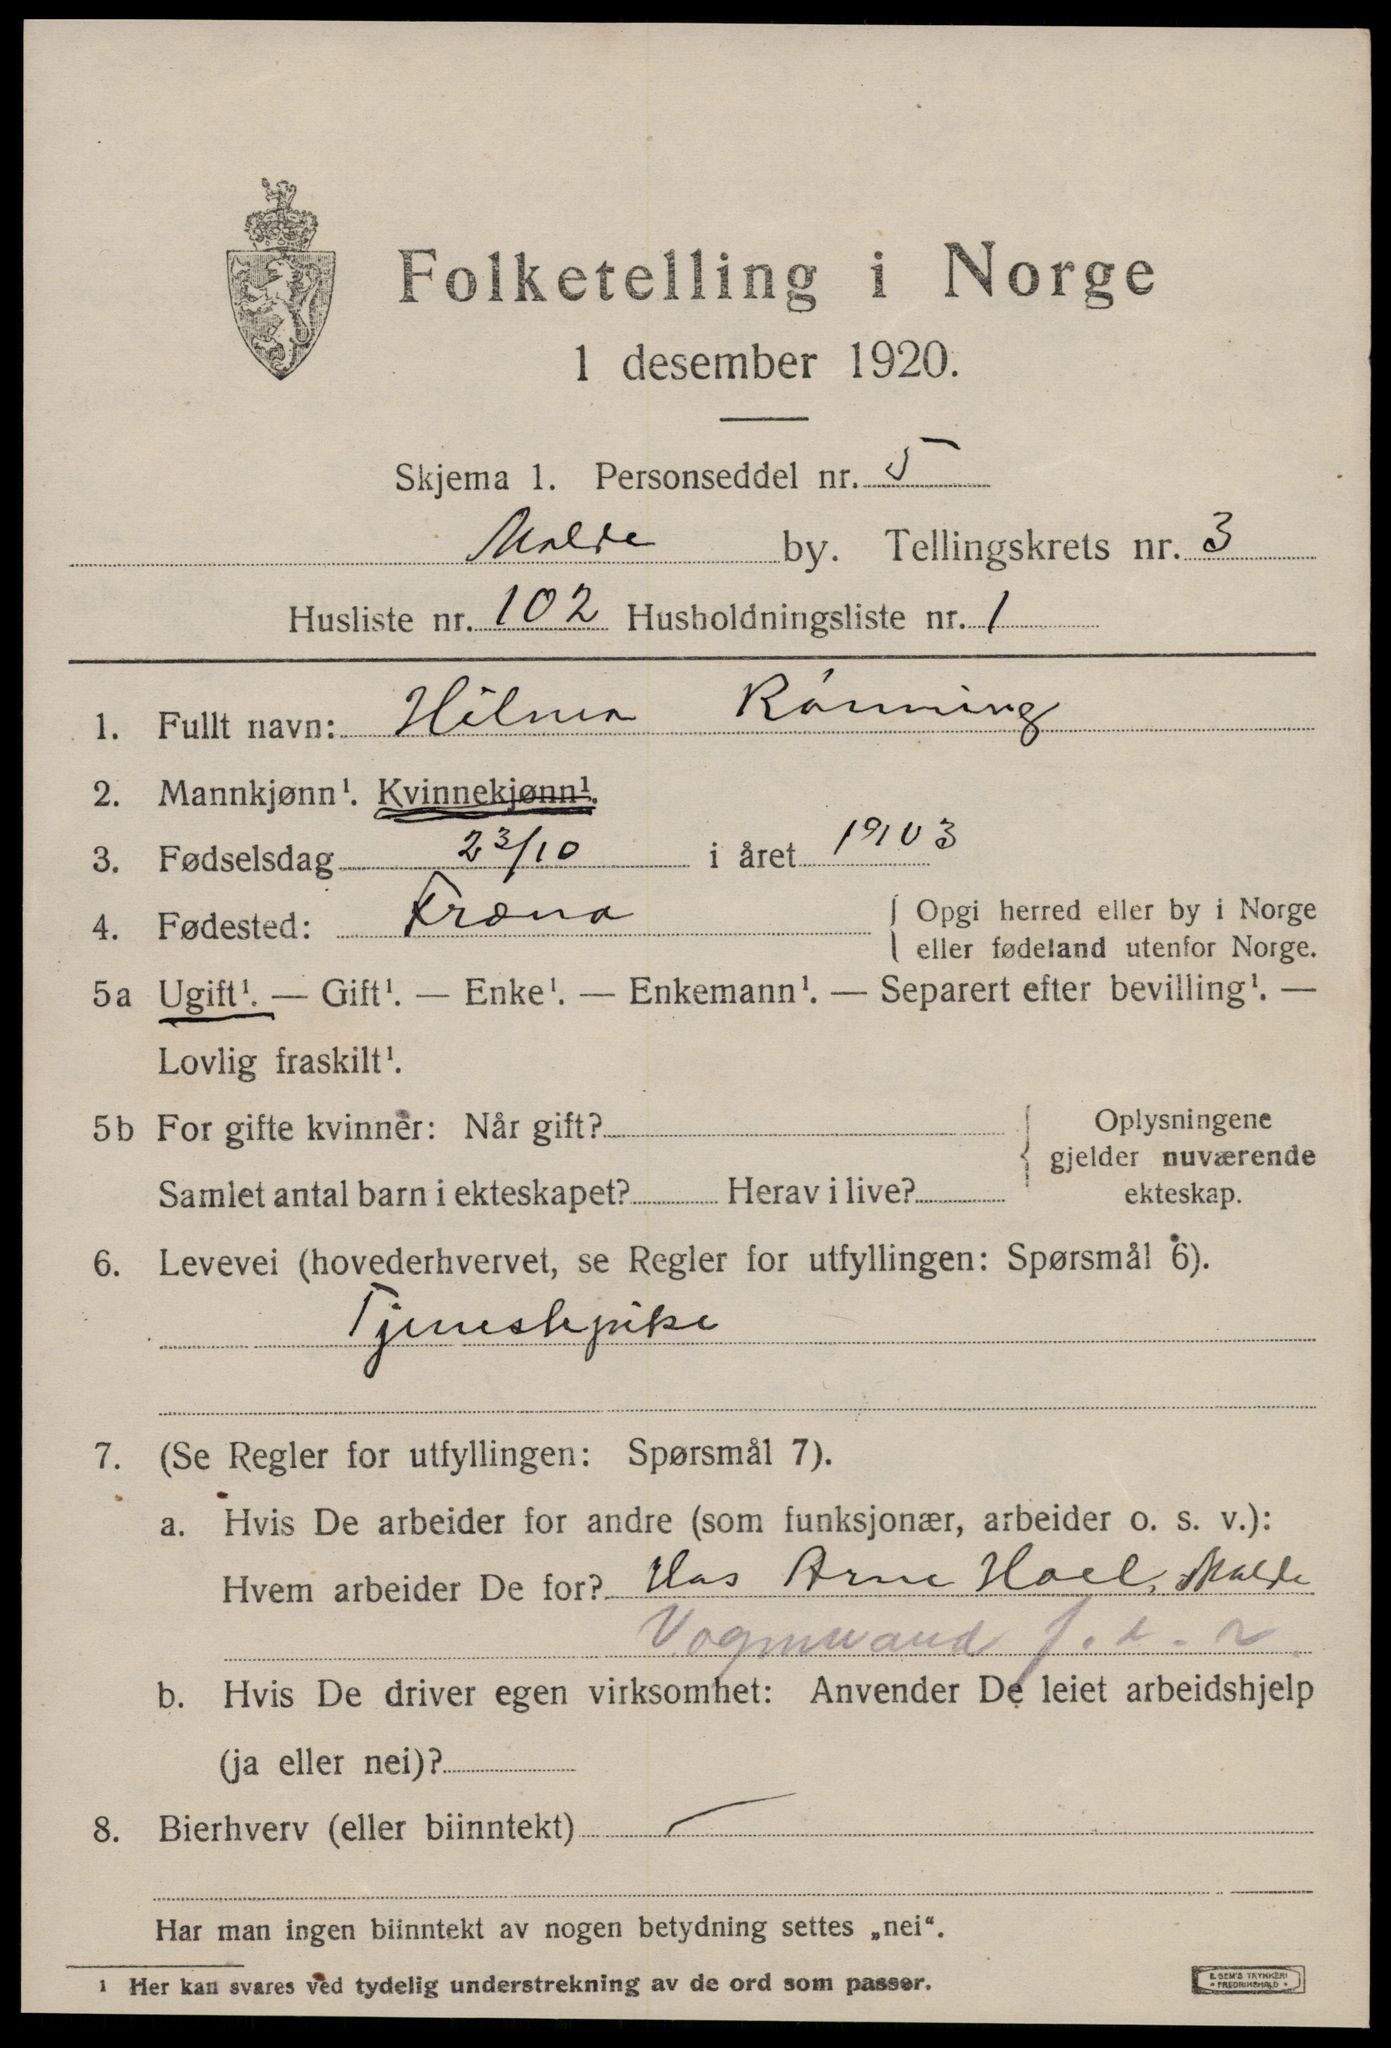 Folketelling i Norge
1 desember 1920.
Skjema 1. Personseddel nr. 5
Molde by. Tellingskrets nr. 3
Husliste nr. 102 Husholdningsliste nr. 1
1. Fullt navn: Hilma Rónning
2. Mannkjønn¹. Kvinnekjønn¹.
3. Fødselsdag 23/10 i året 1903
4. Fødested: Fræna { Opgi herred eller by i Norge
eller fødeland utenfor Norge.
5a Ugift¹. — Gift¹. — Enke¹. — Enkemann¹. — Separert efter bevilling¹. —
Lovlig fraskilt¹.
5b For gifte kvinner: Når gift? { Oplysningene
gjelder nuværende
Samlet antal barn i ekteskapet? Herav i live? ekteskap.
6. Levevei (hovederhvervet, se Regler for utfyllingen: Spørsmål 6).
Tjenestepike
7. (Se Regler for utfyllingen: Spørsmål 7).
a. Hvis De arbeider for andre (som funksjonær, arbeider o. s. v.):
Hvem arbeider De for? Hos Arne Hoel, Molde
Vognmand
b. Hvis De driver egen virksomhet: Anvender De leiet arbeidshjelp
(ja eller nei)?
8. Bierhverv (eller biinntekt) —
Har man ingen biinntekt av nogen betydning settes „nei“.
¹ Her kan svares ved tydelig understrekning av de ord som passer.
E. SEM'S TRYKKERI
• FREDRIKSHALD •